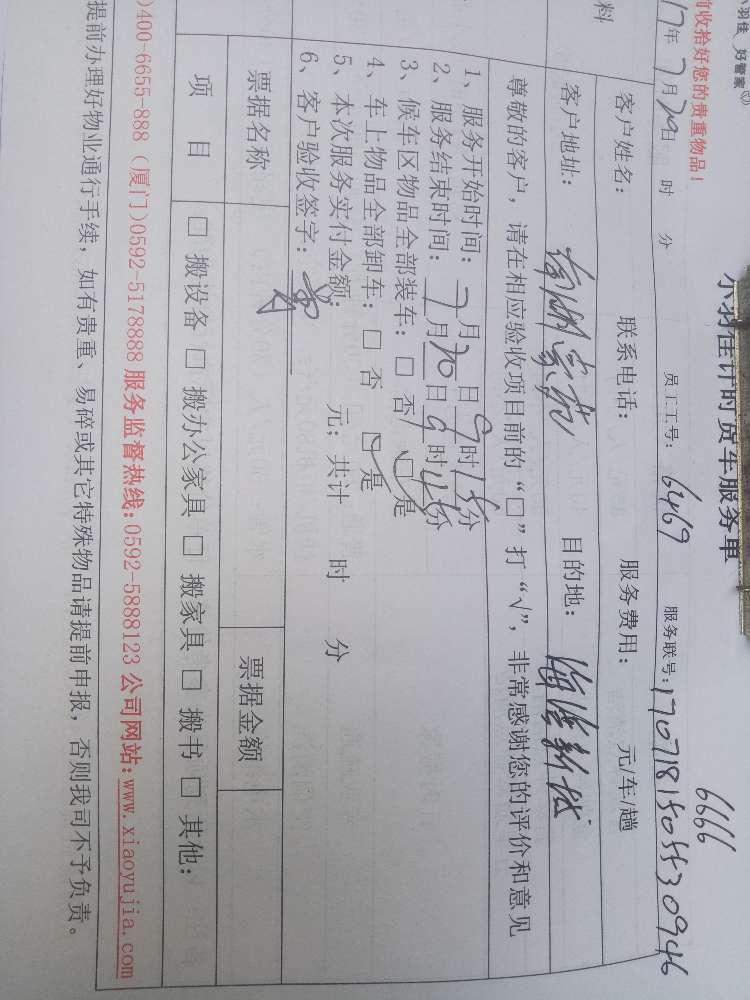 小羽佳 好管家
前收拾好您的贵重物品！
小羽佳计时货车服务单
6666
17年7月20日 时 分 员工工号：6469 服务联号：1707181505530946
料
客户姓名： 联系电话： 服务费用： 元/车/趟
客户地址： 目的地：
尊敬的客户，请在相应验收项目前的“□”打“√”，非常感谢您的评价和意见
1、服务开始时间：7月 日9时15分
2、服务结束时间：7月20日9时45分
3、候车区物品全部装车：□ 否 ☑ 是
4、车上物品全部卸车：□ 否 ☑ 是
5、本次服务实付金额： 元；共计 时 分
6、客户验收签字：
票据名称 票据金额
项 目 □ 搬设备 □ 搬办公家具 □ 搬家具 □ 搬书 □ 其他：
)400-6655-888（厦门)0592-5178888 服务监督热线:0592-5888123 公司网站:www.xiaoyujia.com
提前办理好物业通行手续，如有贵重、易碎或其它特殊物品请提前申报，否则我司不予负责。